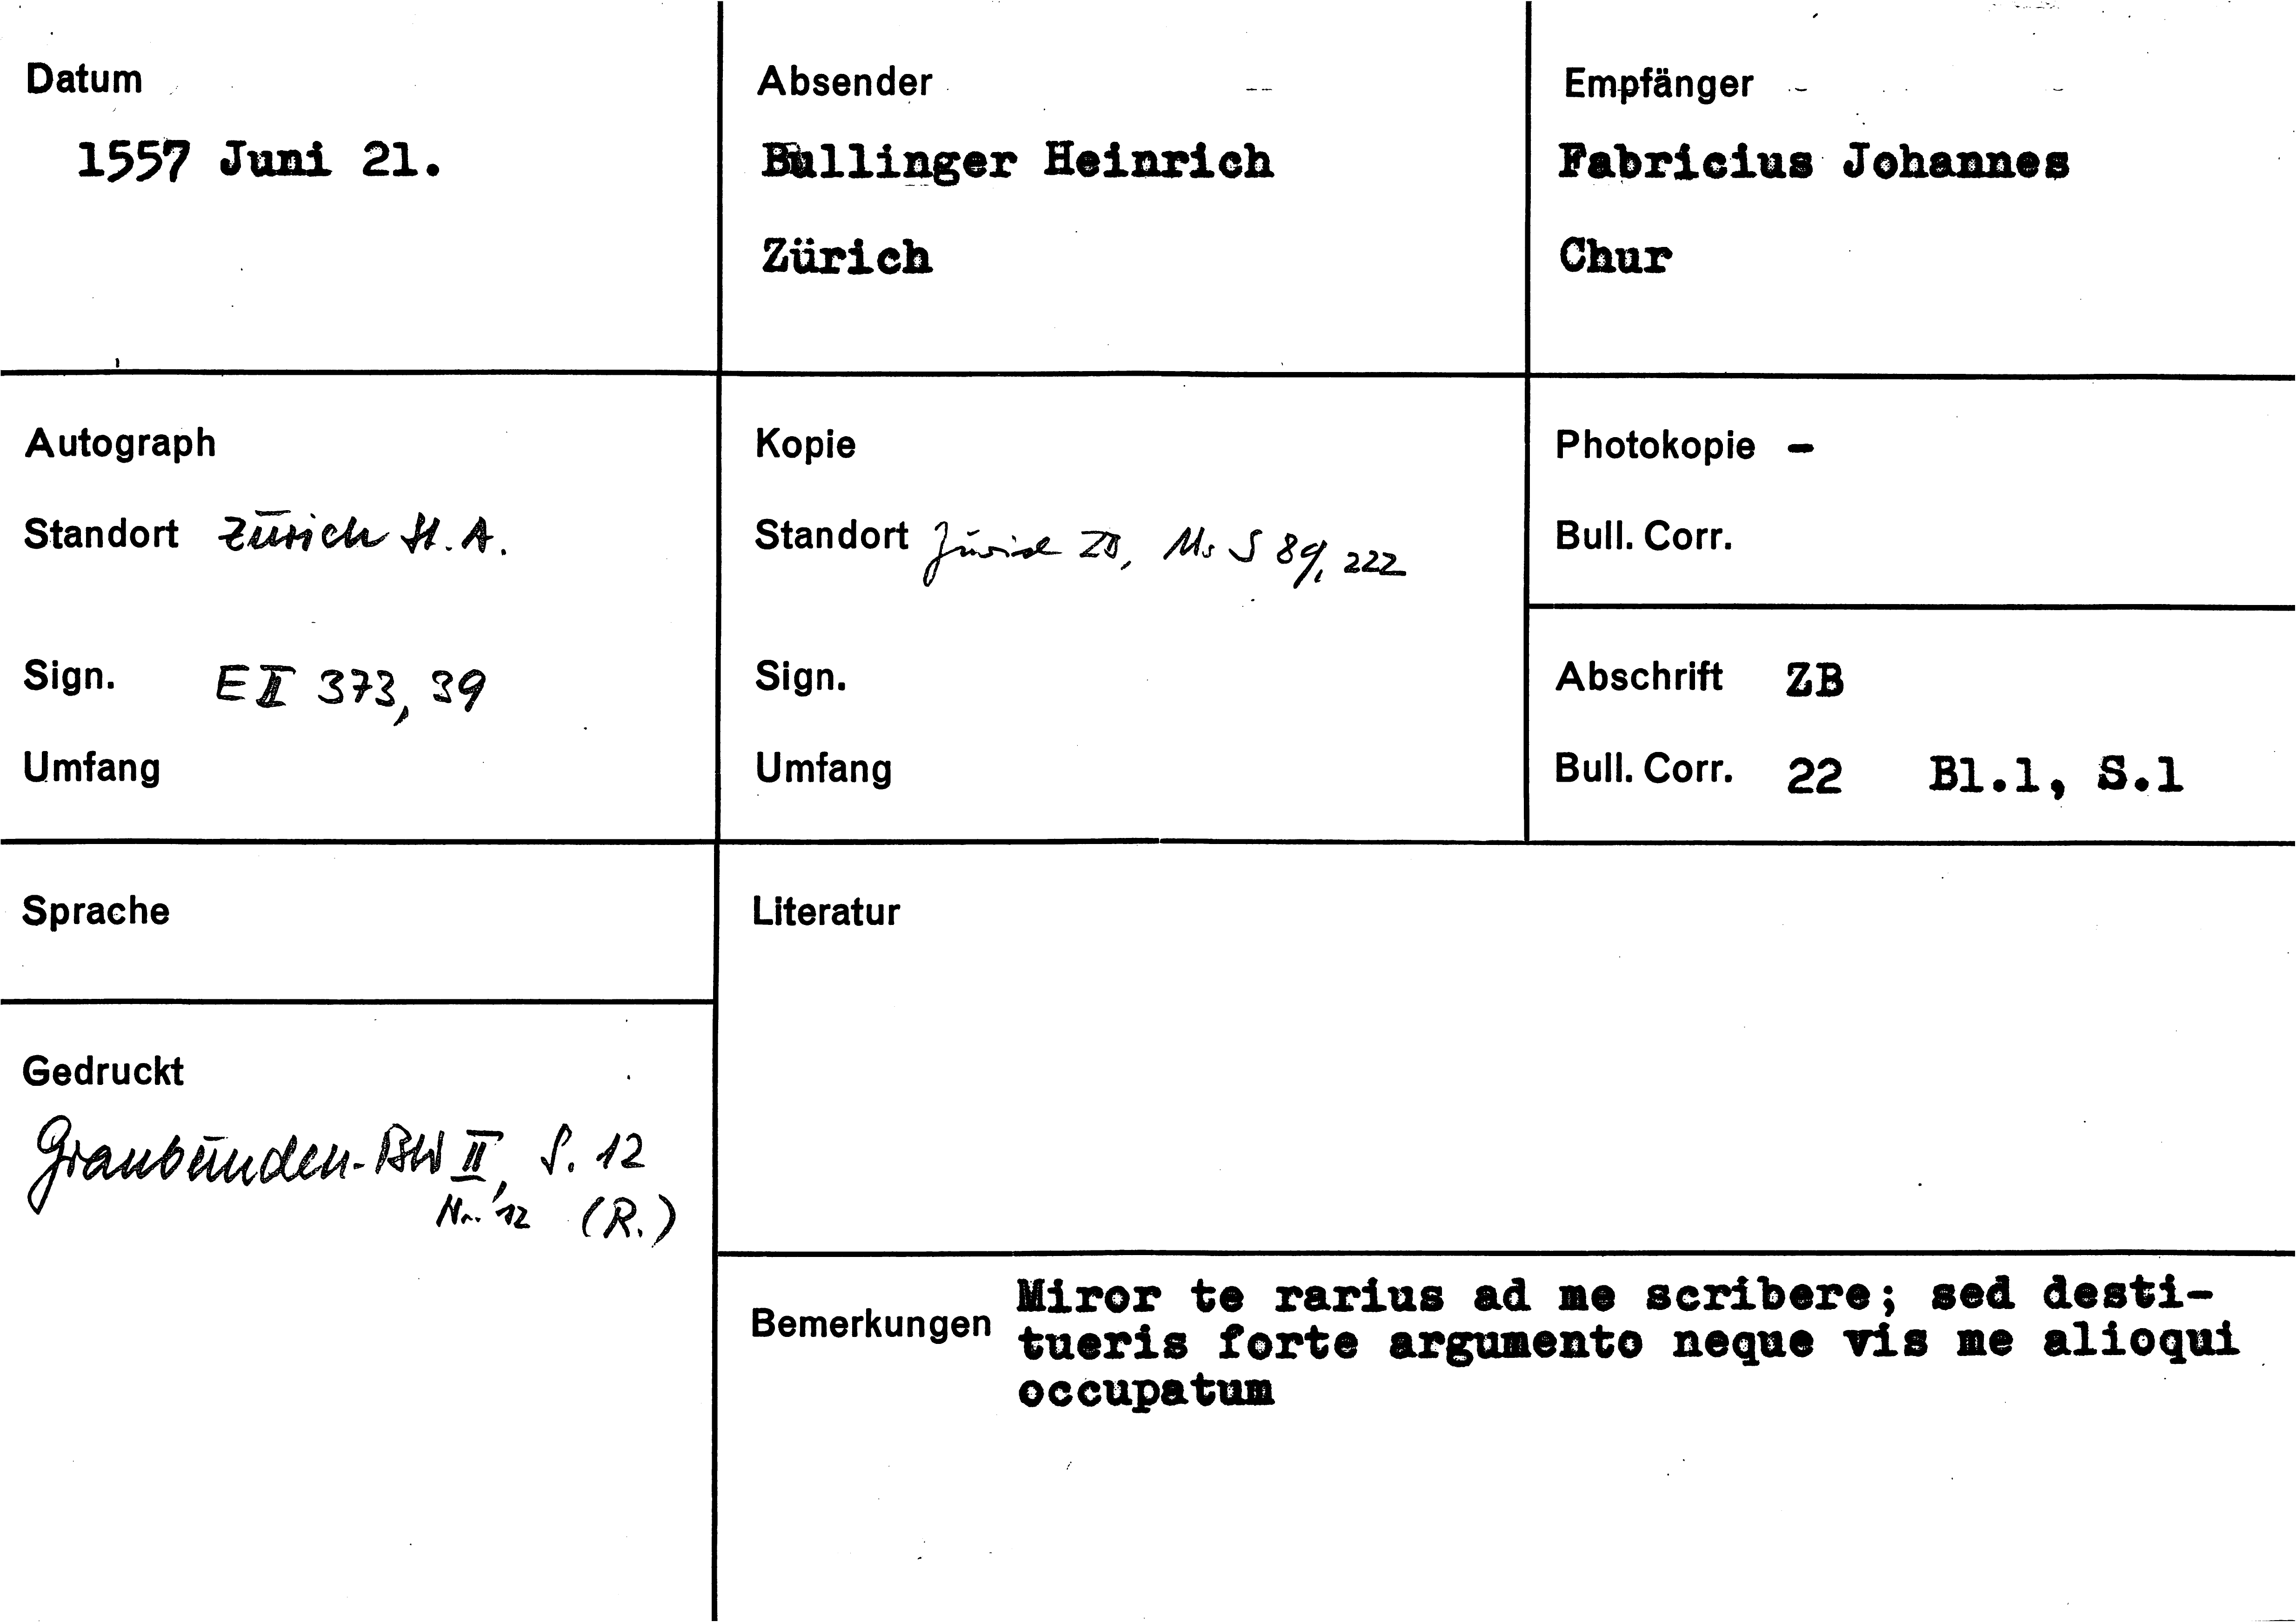 Datum
1557 Juni 21.
Absender
Bullinger Heinrich
Zürich
Empfänger
Fabricius Johannes
Chur
Autograph
Standort Zürich St. A.
Sign. E II 373, 39
Umfang
Kopie
Standort Zürich ZB, Ms S 89, 222
Sign.
Umfang
Photokopie -
Bull. Corr.
Abschrift ZB
Bull. Corr. 22 Bl.1, S.1
Sprache
Gedruckt
Graubünden-BW II, S. 12
Nr. 12 (R.)
Literatur
Bemerkungen
Miror te rarius ad me scribere; sed desti-
tueris forte argumento neque vis me alioqui
occupatum